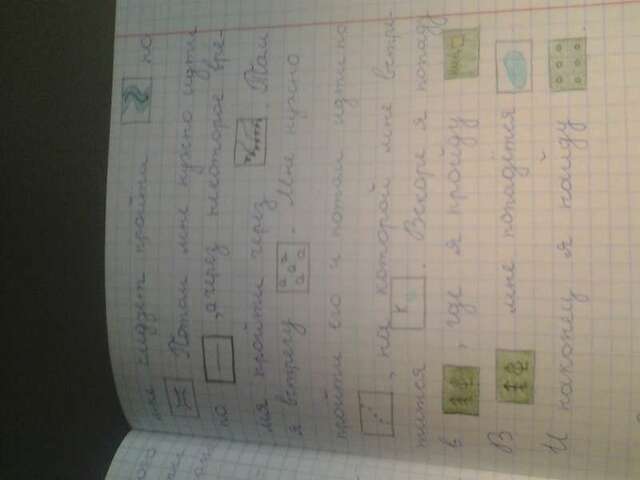 мне следует пройти по
. Потом мне нужно идти
по , а через некоторое вре-
мя пройти через . Там
я встречу . Мне нужно
пройти его и потом идти по
, на которой мне встре-
тится К . Вскоре я попаду
в , где я пройду
В мне попадётся
И наконец я найду .